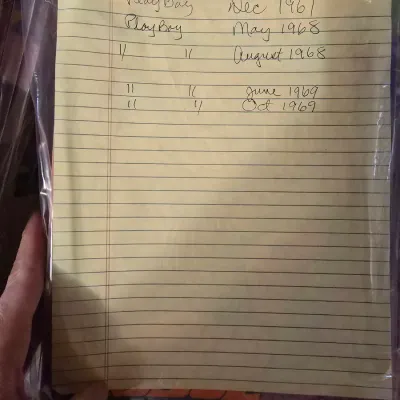 PlayBoy Dec 1961
PlayBoy May 1968
" " August 1968
" " June 1969
" " Oct 1969